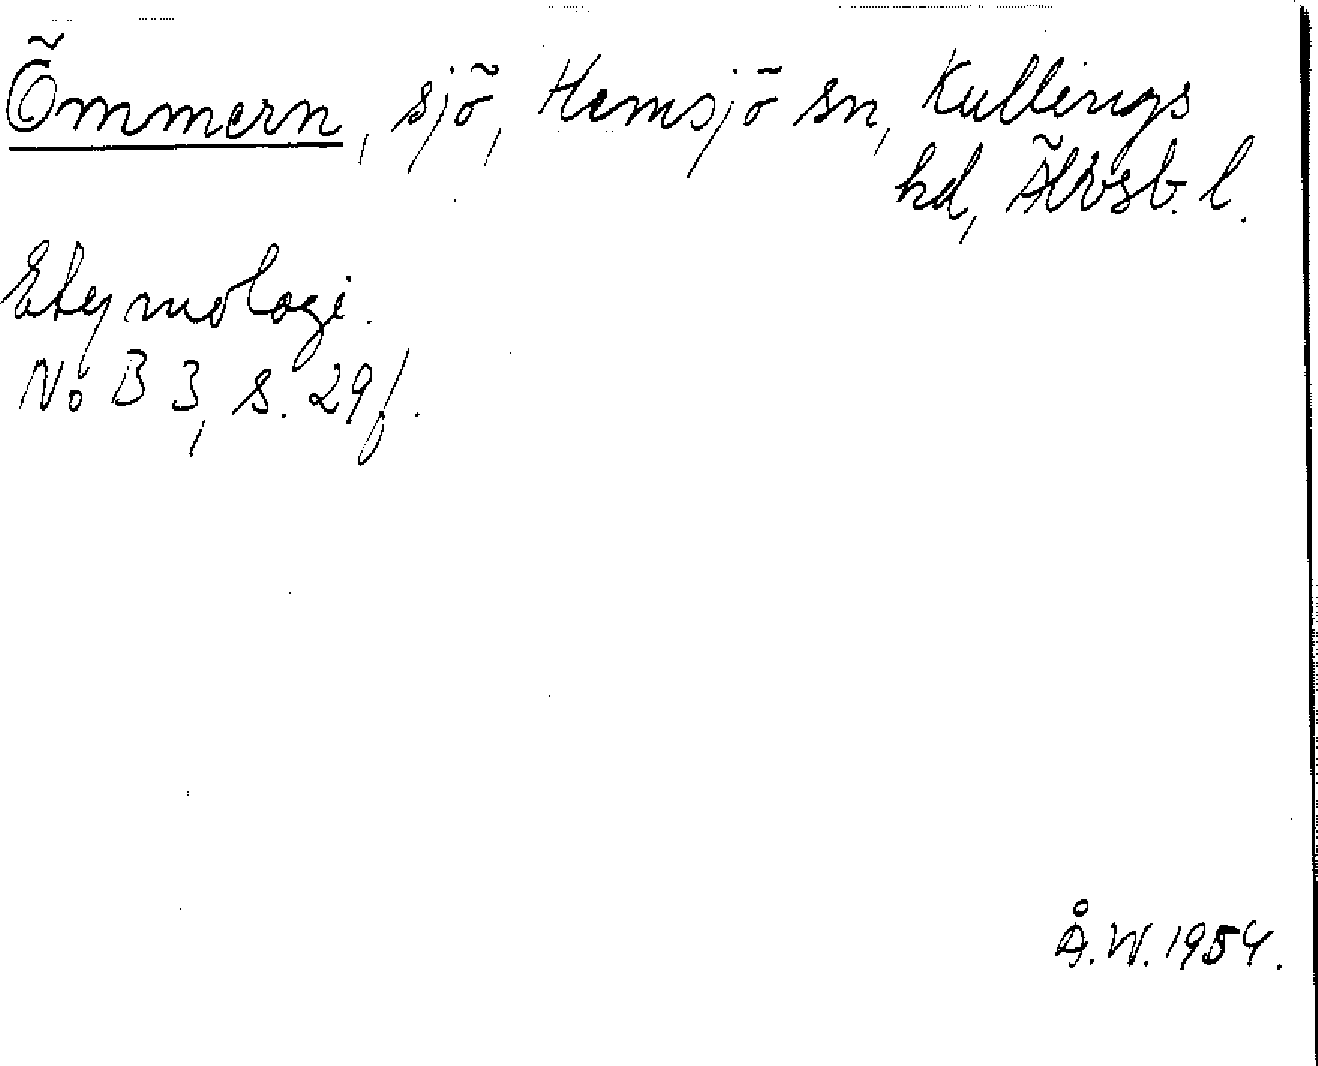 Ömmern, sjö, Hemsjö sn, Kullings
hd, Älvsb. l.
Etymologi.
NoB 3, s. 29 f.
Å.W. 1954.